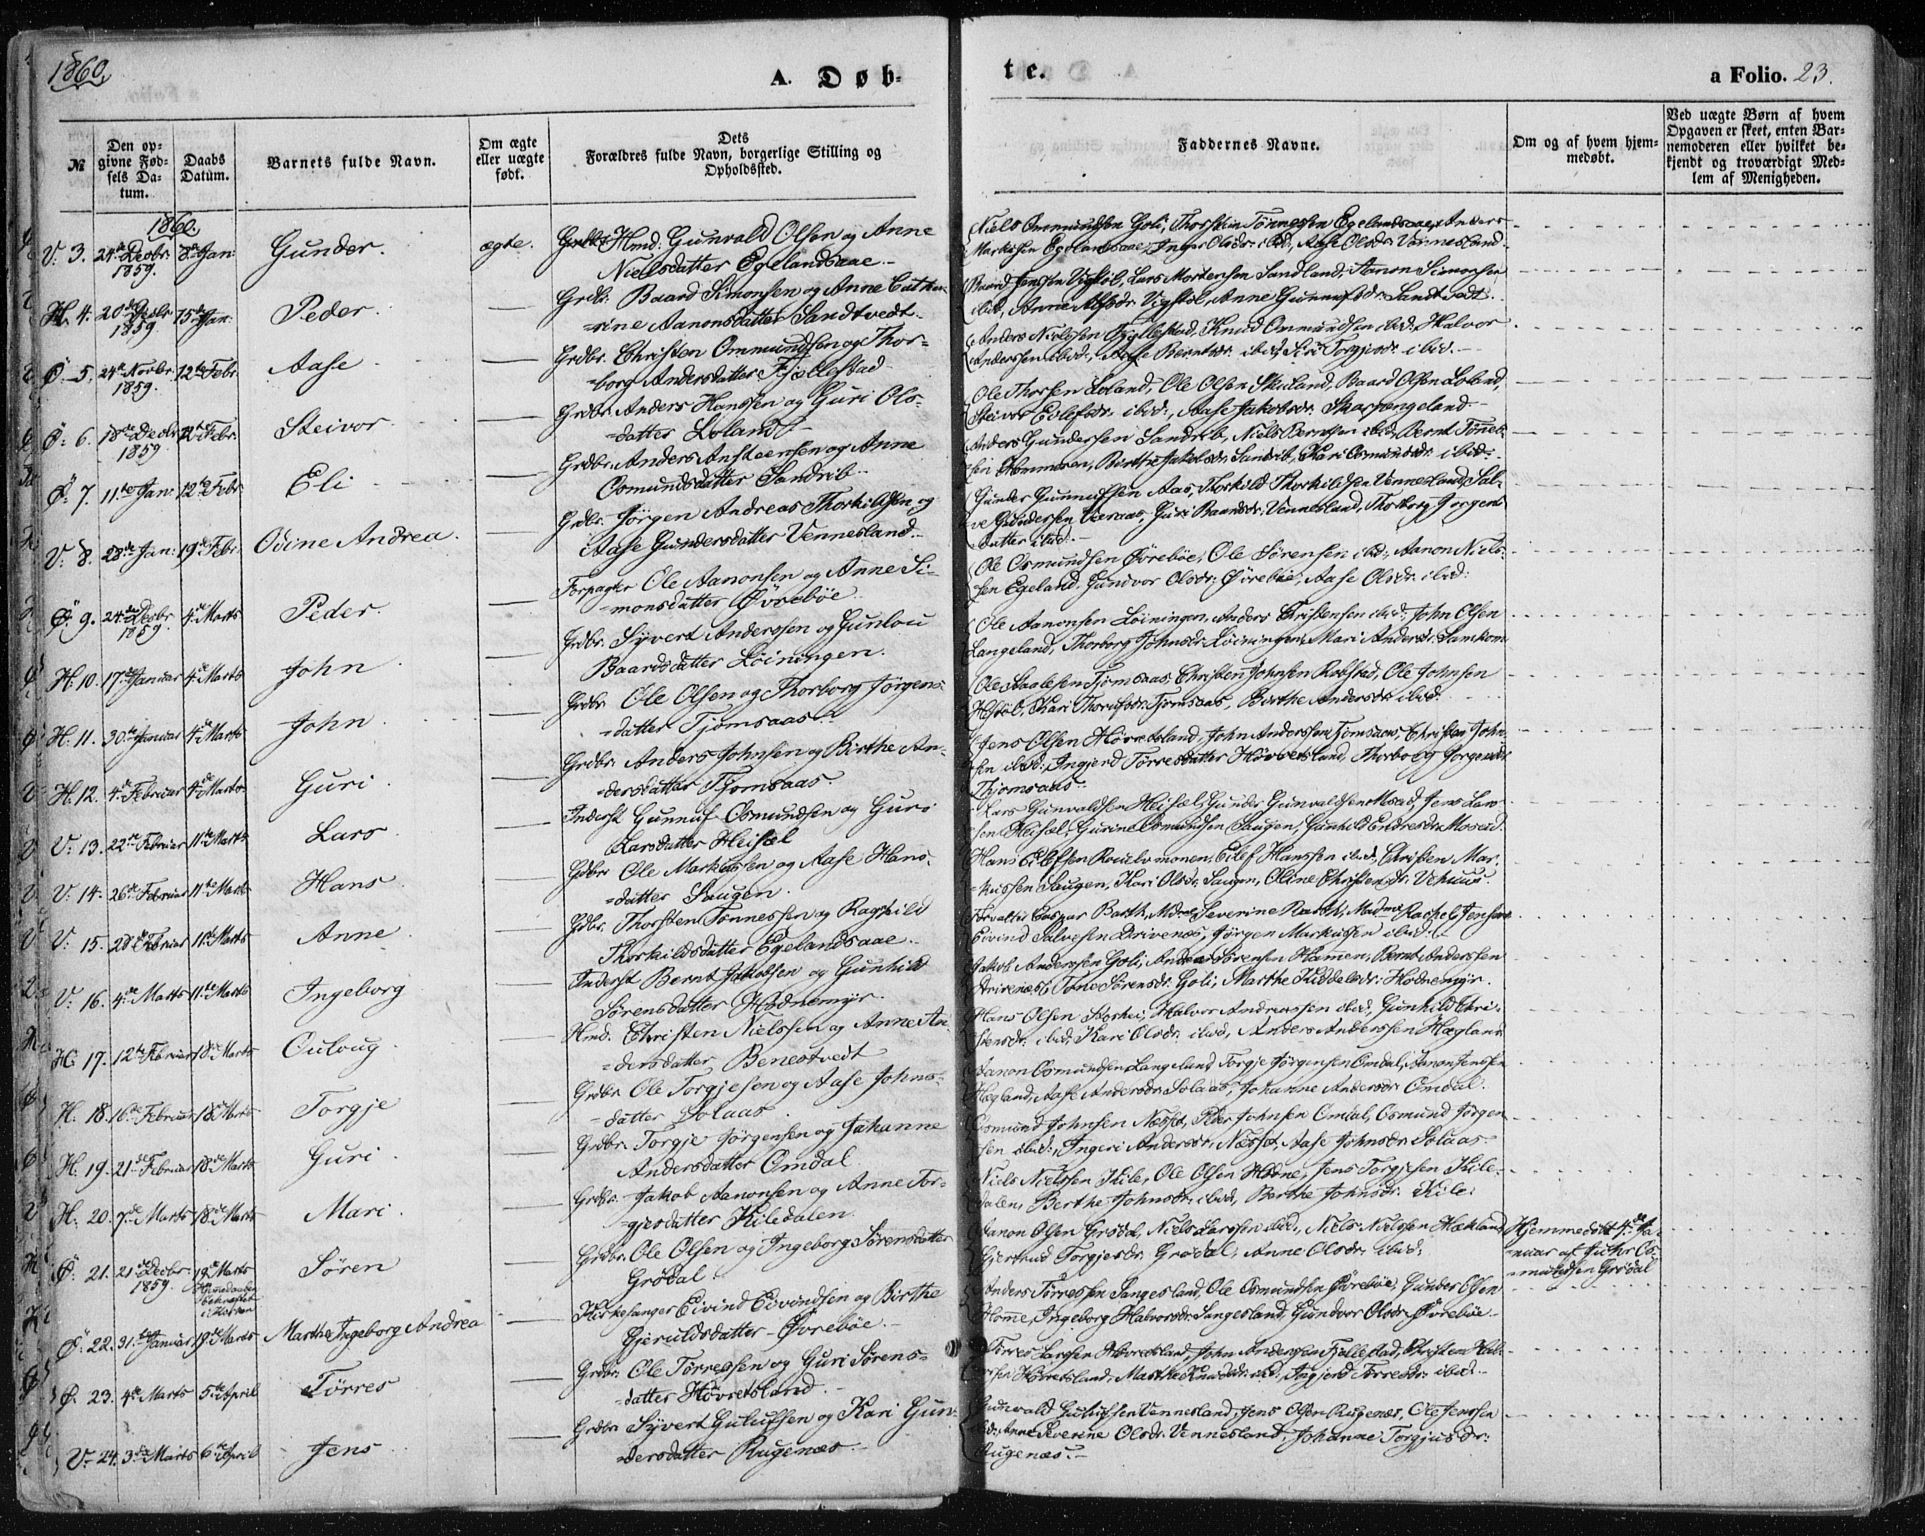 1860.
A. Døb-
te.
a Folio. 23.
№
Den op-
givne Fød-
sels Da-
tum.
Daabs
Datum.
Barnets fulde Navn.
Om ægte
eller uægte
født.
Dets
Forældres fulde Navn, borgerlige Stilling og
Opholdssted.
Faddernes Navne.
Om og af hvem hjem-
medøbt.
Ved uægte Børn af hvem
Opgaven er skeet, enten Bar-
nemoderen eller hvilket be-
kjendt og troværdigt Med-
lem af Menigheden.
1860.
V. 3. 24de Decbr. 1859. 8de Jan: Gunder. ægte. Hmd: Gunvald Olsen og Anne
Nielsdatter Egelandsaae.
Niels Ommundsen Goli, Thorstein Tönnessen Egelandsaae, Anders
Markusen Egelandsaae, Inger Olsdr. ibid, Aase Olsdr. Vennesland.
H. 4. 20de Decbr. 1859 15de Jan: Peder. Grdbr. Baard Simonsen og Anne Cathe-
rine Aanonsdatter Sandtvedt.
Baard Jensen Vigstöl, Lars Mortensen Sandland, Aanon Simonsen
ibid, Anne Vigstöl, Anne Gunnufsdr. Sandtvedt.
Ø. 5. 24de Novbr. 1859. 12te Febr. Aase Grdbr. Christen Ommundsen og Thor-
borg Andersdatter Fjellestad
Anders Nielsen Fjellestad, Knud Ommundsen ibid, Halvor
Anderssen ibid, Aase Berntsdr. ibid, Siri Torgjusdr. ibid.
Ø. 6. 18de Decbr. 1859 12te Febr. Steivor. Grdbr. Anders Hanssen og Guri Ols-
datter Loland
Ole Thorsen Loland, Ole Olsen Skuland, Baard Olsen Loland
Steivor Eilefsdr. ibid, Aase Jakobsdr. Skarpengeland
Ø. 7. 11te Jan: 12te Febr. Eli Grdbr. Anders Anstensen og Anne
Osmundsdatter Sandrib
Anders Gundersen Sandrib, Niels Berntsen ibid, Bernt Tönnes-
sen Hommeren, Birthe Jakobsdr. Sandrib, Kari Osmundsdr. ibid.
V. 8. 28de Jan: 19de Febr. Odine Andrea. Grdbr. Jörgen Andreas Thorkildsen og
Aase Gundersdatter Vennesland.
Gunder Gunnufsen Aas, Thorkild Thorkildsen Vennesland, Sal-
ve Gundersen, Guri Baardsdr. Vennesland, Thorborg Jörgens-
datter ibid.
Ø. 9. 24de Decbr. 1859. 4de Marts Peder. Forpagter Ole Aanonsen og Anne Si-
monsdatter Øvrebøe.
Ole Osmundsen Øvrebøe, Ole Sörensen ibid, Aanon Niels-
sen Egeland, Gundvor Olsdr. Øvrebøe, Aase Olsdr. ibid.
H. 10. 17de Januar 4de Marts John Grdbr. Syvert Anderssen og Gunlou
Baardsdatter Löiningen.
Ole Aanonsen Löiningen, Anders Christensen ibid, John Olsen
Langeland, Thorborg Johnsdr. Löiningen, Mari Andersdr. Samkom
H. 11. 30te Januar 4de Marts John. Grdbr. Ole Olsen og Thorborg Jörgens-
datter Tjomsaas
Ole Tjomsaas, Christen Johnsen Robstad, Ole Johnsen
Kari Tjomsaas, Birthe Andersdr. ibid.
H. 12. 4de Februar 4de Marts Guri Grdbr. Anders Johnsen og Birthe An-
dersdatter Tjomsaas
Jens Olsen Hövretsland, John Anderssen Tjomsaas, Christen John-
sen ibid, Ingjerd Törresdatter Hövretsland, Thorborg Jörgensdr.
Tjomsaas.
V. 13. 22de Februar 11te Marts Lars Inderst Gunnuf Osmundsen og Guri
Larsdatter Heisel
Lars Gunvaldsen Heisel, Gunder Gunvaldsen Mosed, Jens Lars-
sen Heisel, Gurine Osmundsen Saugen, Gunhild Endresdr. Mosed.
V. 14. 26de Februar 11te Marts Hans. Gdbr. Ole Markussen og Aase Hans-
datter Saugen.
Hans Eilefsen, Eilef Hanssen ibid, Christen Mar-
kussen Saugen, Kari Olsdr. Saugen, Oline Christensdr. Vehuus.
V. 15. 28de Februar 11te Marts Anne. Gdbr. Thorsten Tönnessen og Ragnild
Thorkildsdatter Egelandsaae.
Forvalter Caspar Barth, Severine Barth, Rachel Jensen
Eivind Salvesen Drivenæs, Jörgen Markussen ibid.
V. 16. 4de Marts 11te Marts Ingeborg Inderst Bernt Jakobsen og Gunhild
Sörensdatter Hodnemyr.
Jakob Anderssen Goli, Sörensen Hamen, Bernt Anderssen
Drivenæs, Tone Sörensdr. Goli, Marthe Hodnemyr.
H. 17. 12te Februar 18de Marts Oulaug. Hmd. Christen Nielssen og Anne An-
dersdatter Benestvedt
Hans Olsen, Halvor Andreassen ibid, Gunhild Chri-
stensdr. ibid, Kari Olsdr. ibid, Anders Anderssen Hægland
H. 18. 16de Februar 18de Marts Torgje Grdbr. Ole Torgjesen og Aase Johns-
datter Solaas.
Aanon Osmundsen Langeland, Torgje Jörgensen Omdal, Aanon Jensen
Hægland, Aase Andersdr. Solaas, Johanne Andersdr. Omdal.
H. 19. 21de Februar 18de Marts Guri. Grdbr. Torgje Jörgensen og Johanne
Andersdatter Omdal
Osmund Johnsen, Peder Johnsen Omdal, Osmund Jörgen-
sen ibid, Ingeri Andersdr., Aase Johnsdr. Solaas
H. 20. 7de Marts 18de Marts Mari. Grdbr. Jakob Aanonsen og Anne Tor-
gjesdatter Kiledalen.
Niels Nielssen Kile, Ole Olsen Hodne, Jens Torgjesen Kile-
dalen, Berthe Johnsdr. ibid, Berthe Johnsdr. Kile.
Ø. 21. 21de Decbr. 1859. 19de Marts Hjemmedaaben
bekræftet
i Kirken Sören Grdbr. Ole Olsen og Ingeborg Sörensdatter
Grödal.
Aanon Olsen Grödal, Niels Larssen ibid, Niels Nielssen Hækland
Gjertrud Torgjesdr. Grödal, Anne Olsdr. ibid.
Hjemmedöbt 4de Ja-
nuar af Guthr. Os-
mundsen Grödal
Ø. 22. 31te Januar 19de Marts Marthe Ingeborg Andrea Kirkesanger Eivind Eivindsen og Birthe
Gjeruldsdatter Øvrebøe.
Anders Törressen Sangesland, Ole Osmundsen Øvrebøe, Gunder Olsen
Homme, Ingeborg Halvorsdr. Sangesland, Gundvor Olsdr. Øvrebøe
Ø. 23. 4de Marts 5te April Törres Grdbr. Ole Törressen og Guri Sörens-
datter Hövretsland.
Törres Larssen Hövretsland, John Andersen Fjellestad, Christen
Hövretsland, Marthe Knudsdr. ibid, Ingjerd Törresdr. ibid.
V. 24. 3de Marts 6te April Jens Grdbr. Syvert Gulufsen og Kari Gun-
dersdatter Rugenæs
Gunvald Gulufsen Vennesland, Jens Olsen Rugenæs, Ole Jenssen
ibid, Anne Severine Olsdr. Vennesland, Johanne Torgjusdr.
Rugenæs.